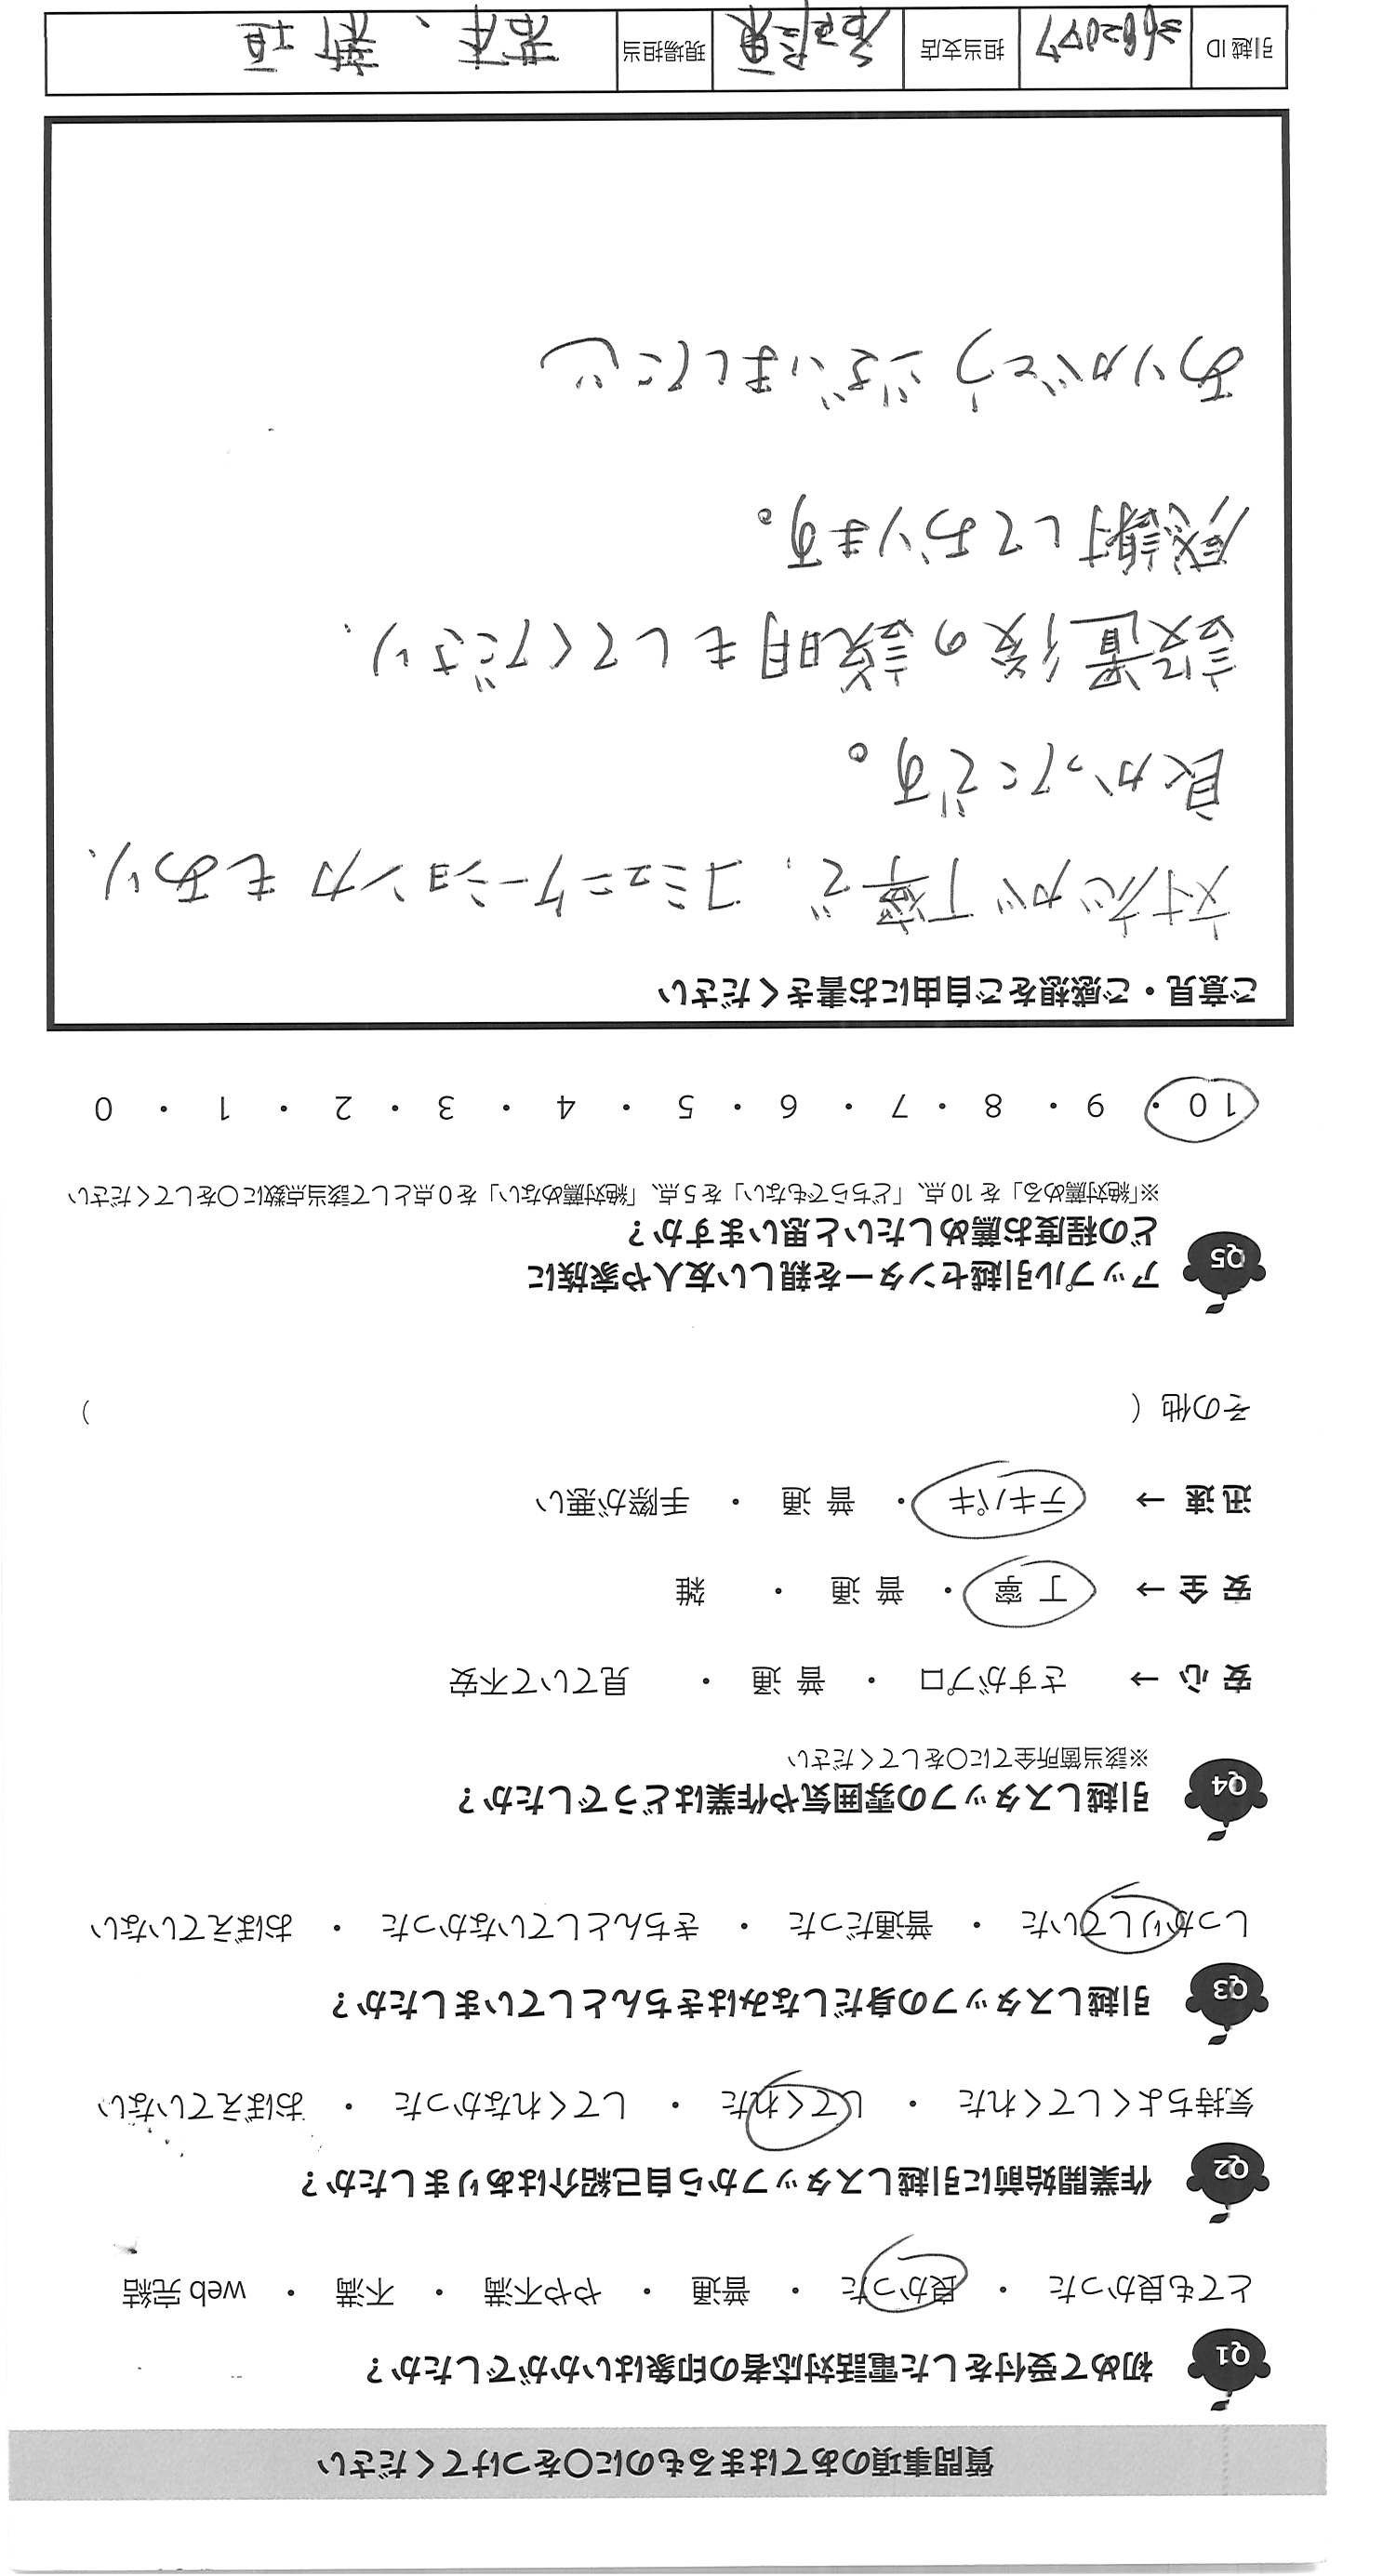 質問事項のあてはまるものに〇をつけてください
Q1 初めて受付をした電話対応者の印象はいかがでしたか？
とても良かった ・ 良かった ・ 普通 ・ やや不満 ・ 不満 ・ web 完結
Q2 作業開始前に引越しスタッフから自己紹介はありましたか？
気持ちよくしてくれた ・ してくれた ・ してくれなかった ・ おぼえていない
Q3 引越しスタッフの身だしなみはきちんとしていましたか？
しっかりしていた ・ 普通だった ・ きちんとしていなかった ・ おぼえていない
Q4 引越しスタッフの雰囲気や作業はどうでしたか？
※該当箇所全てに〇をしてください
安 心 → さすがプロ ・ 普 通 ・ 見ていて不安
安 全 → 丁 寧 ・ 普 通 ・ 雑
迅 速 → テキパキ ・ 普 通 ・ 手際が悪い
その他 （ ）
Q5 アップル引越センターを親しい友人や家族に
どの程度お薦めしたいと思いますか？
※「絶対薦める」を 10 点、「どちらでもない」を 5 点、「絶対薦めない」を 0 点として該当点数に〇をしてください
10 ・ 9 ・ 8 ・ 7 ・ 6 ・ 5 ・ 4 ・ 3 ・ 2 ・ 1 ・ 0
ご意見・ご感想をご自由にお書きください
対応が丁寧で、コミュニケーション力もあり、
良かったです。
設置後の説明もしてくださり、
感謝しております。
ありがとうございました
引越 ID 担当支店 現場担当 若生、新垣